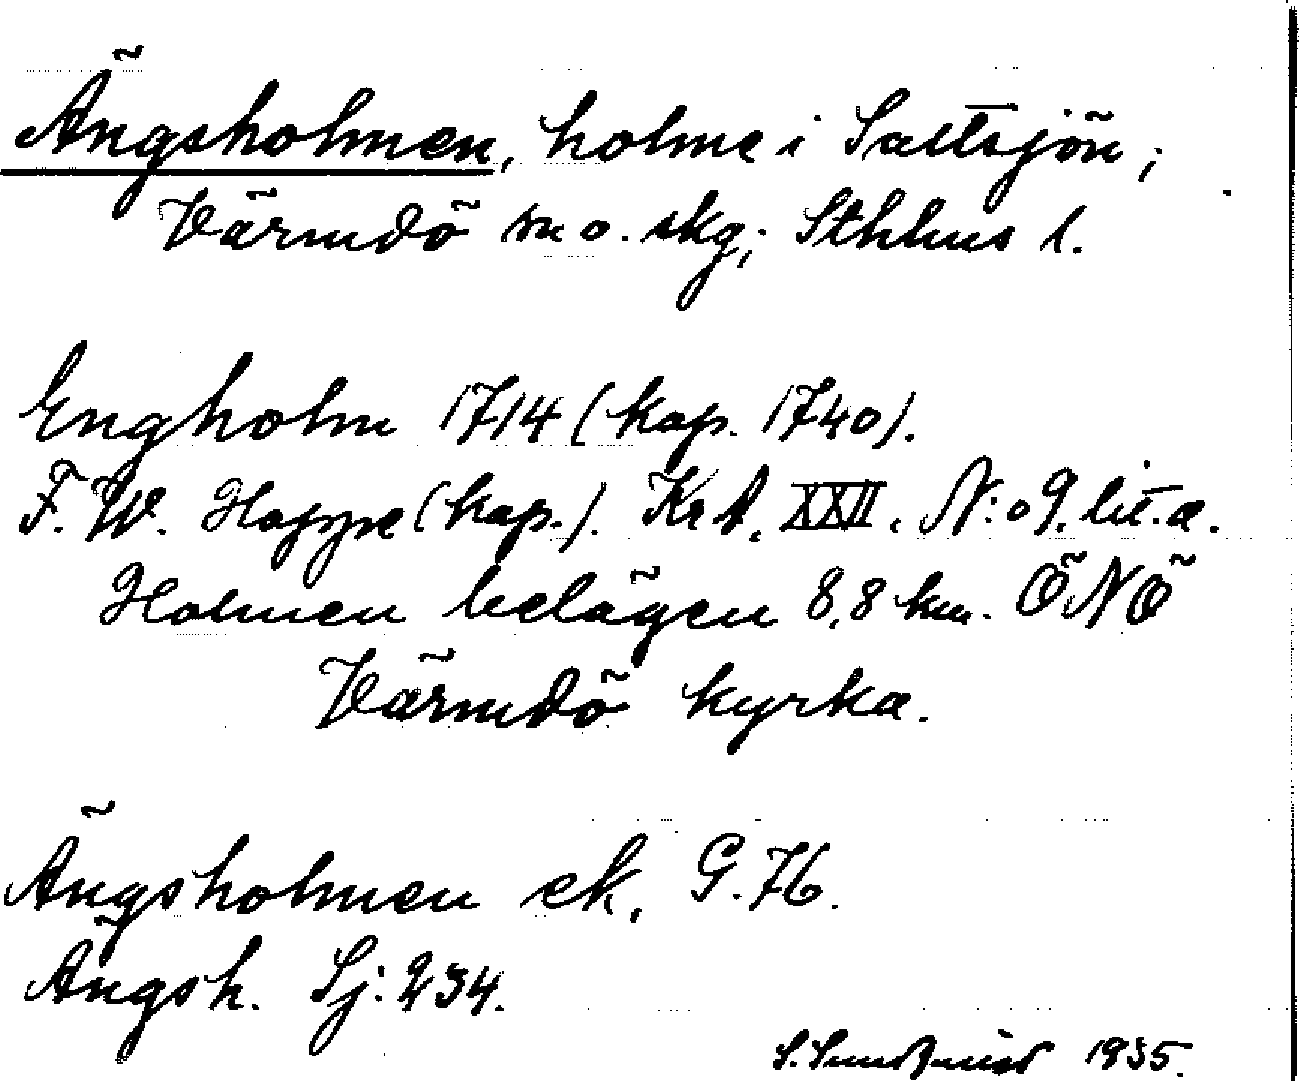 Ängsholmen, holme i Saltsjön;
Värmdö sn o. skg; Sthlms l.
Engholm 1714 (kop. 1740).
F. W. Hoppe (kop.). Kr A. XXII. N:o 9. lit. a.
Holmen belägen 8,8 km. ÖNÖ
Värmdö kyrka.
Ängsholmen ek. G. 76.
Ängsh. Sj: 234.
S. Sundquist 1935.